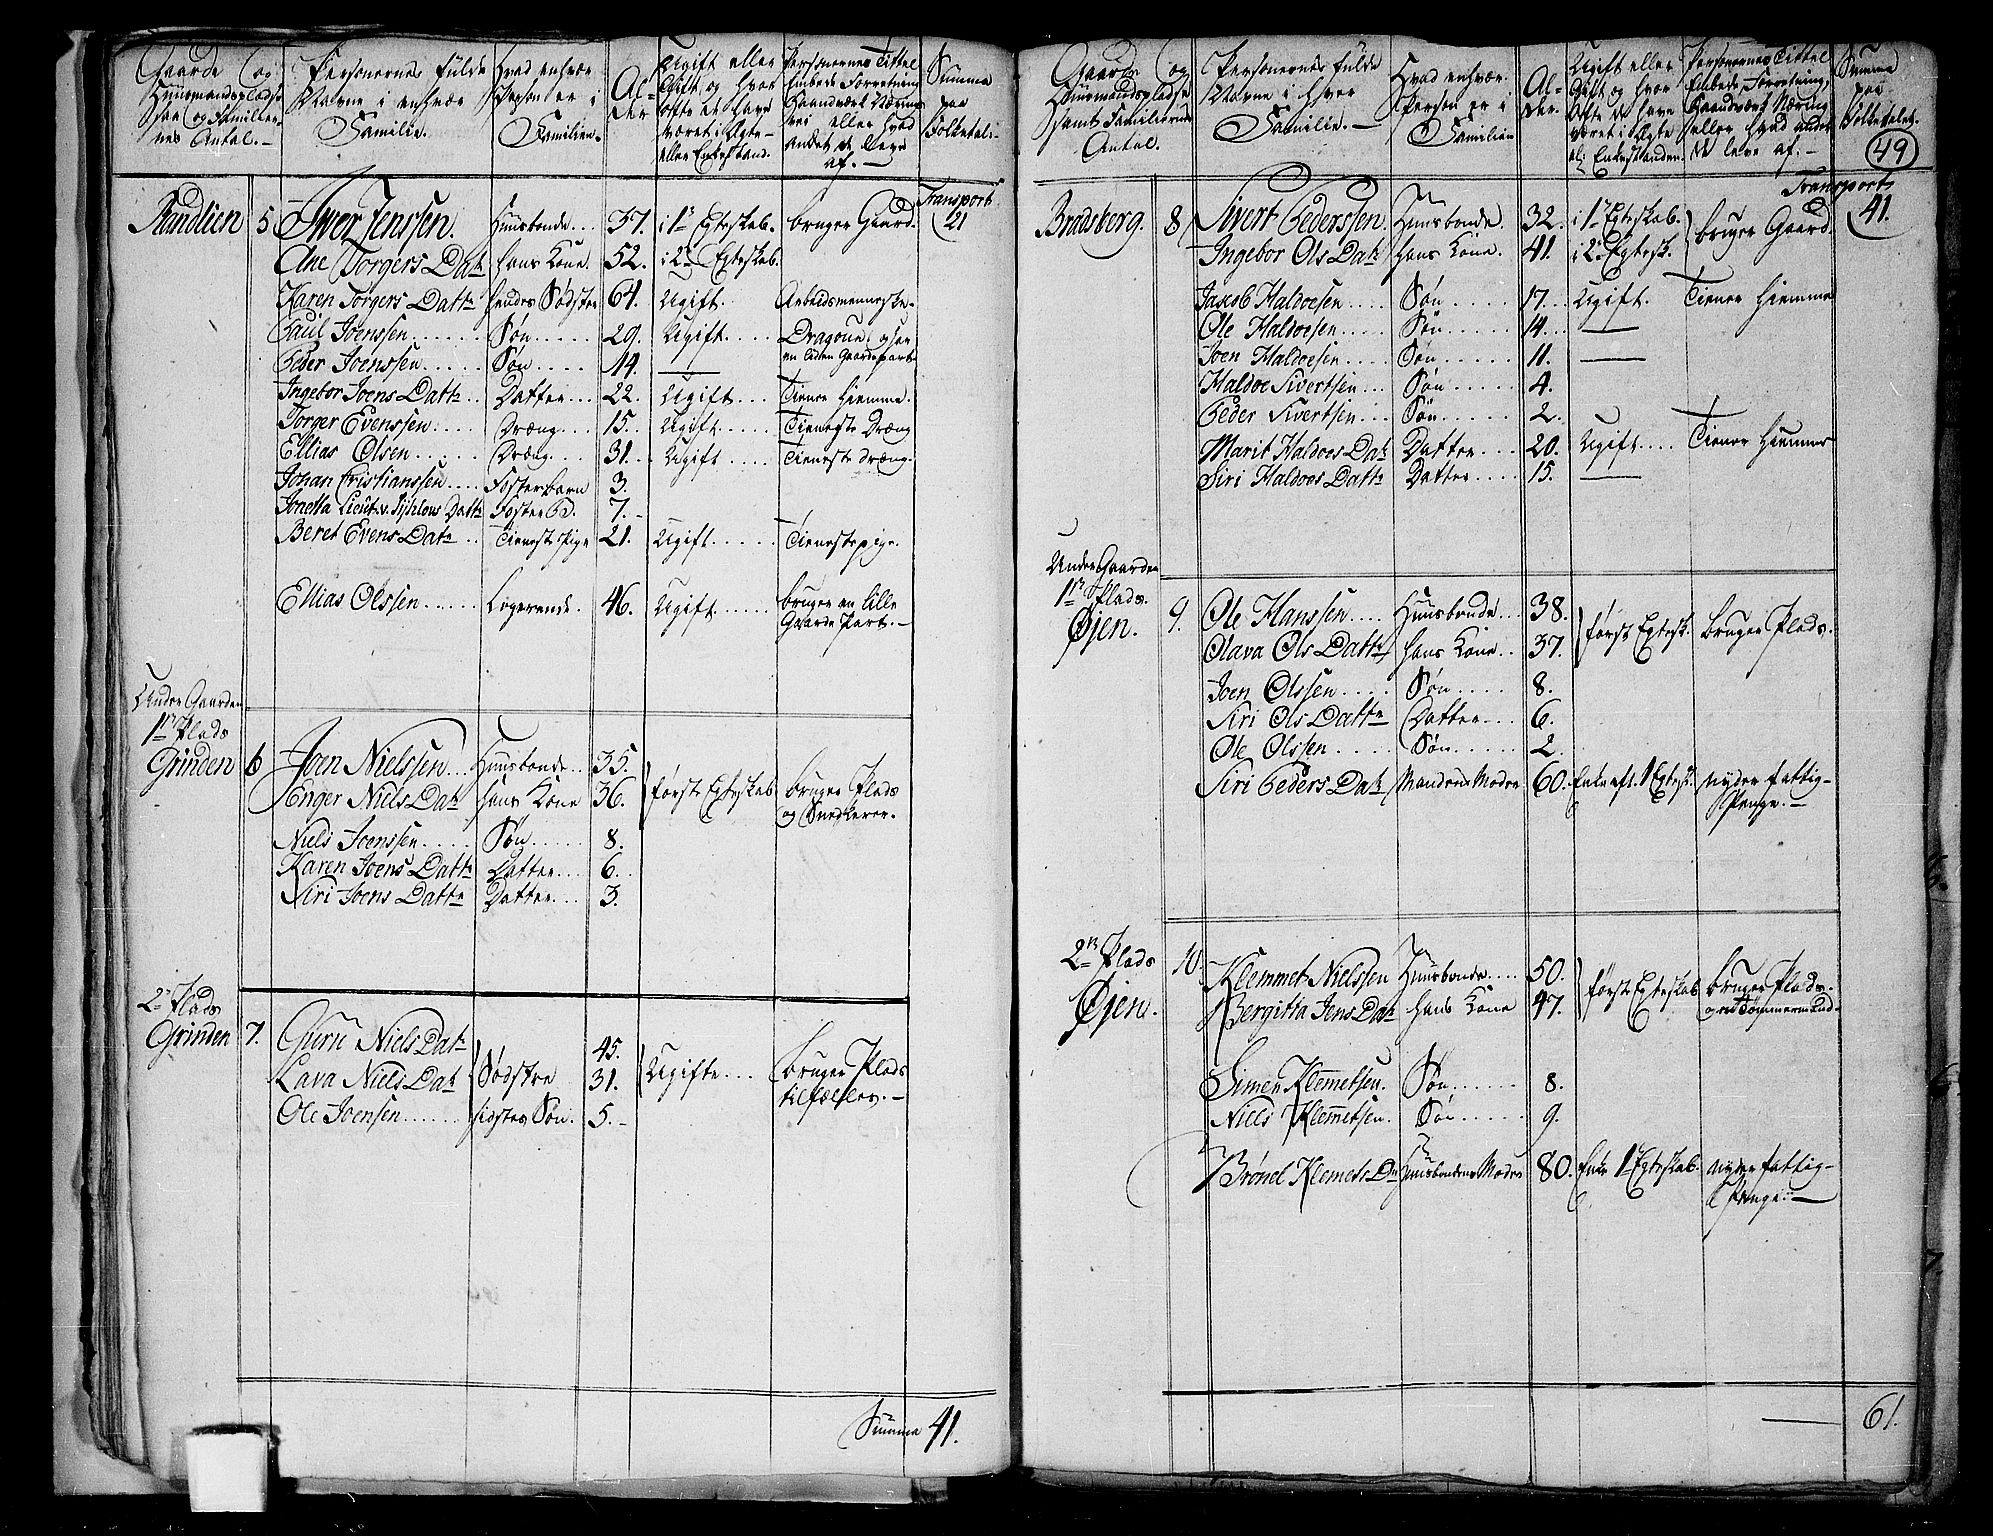 Gaarde og
Huusmandsplads
saa og Familier-
nes Antal.
Personernes fulde
Navne i enhver
Familie.
Hvad enhver
Person er i
Familien.
Al-
der
Ugift eller
Gift, og hvor
ofte de have
været i Ægte-
eller Enkestand.
Personernes Tittel
Embede Forretning
Haandværk Næring
vei eller hvad
andet de leve
af.
Summa
paa
Folketal:
Transport
21
Randlien 5 Iver Jenssen. Huusbonde... 37. i 1te Egteskab. bruger Gaard.
Ane Torgers Datr hans Kone. 52. i 2det Egteskab.
Karen Torgers Dattr hendes Sødster 64. Ugift. Arbeidsmenneske.
Paul Joenssen...... Søn..... 29. Ugift.... Dragoun, og har
en liden Gaardepart
Peder Joenssen..... Søn..... 14. —
Ingebor Joens Dattr.. Datter... 22. Ugift.... Tiener hiemme.
Torger Evenssen..... Dræng... 15. Ugift..... Tieneste Dræng
Ellias Olsen...... Dræng... 31. Ugift..... Tieneste dræng.
Johan Cristianssen.... Fosterbarn 3.
Jonetta Lieut. v. Dattr Foster B. 7.
Beret Evens Datr.. Tieneste Pige 21. Ugift..... Tienestepige.
Ellias Olssen..... Logerende. 46. Ugift...... bruger en lille
Gaarde Part.
Under Gaarden
1te Plads
Grinden 6 Joen Nielssen... Huusbonde.. 35. første Egteskab bruger Plads
Enger Niels Datr hans Kone 36. og Snedkerer.
Niels Joenssen..... Søn...... 8.
Karen Joens Dattr Datter... 6.
Siri Joens Dattr Datter... 3.
2de Plads
Grinden 7. Guru Niels Datr Sødstre 45. Ugifte... bruger Plads
Lava Niels Datr 31. tilfælles.
Ole Joensen...... sidstes Søn. 5.
Summa 41.
Gaarde og
Huusmandspladse
samt Familiernes
Antal.
Personernes fulde
Navne i hver
Familie.
Hvad enhver
Person er i
Familien
Al-
der.
Ugift eller
Gift og hvor
ofte de have
været i Ægte
el: Enkestanden.
Personernes Tittel
Embede, Forretning,
Haandværk Næring
eller hvad andet
de leve af:
Summa
paa
Folketalet.
49
Transport
41.
Bradsberg. 8 Sivert Pederssen. Huusbonde. 32. i 1te Egteskab. bruger Gaard.
Ingebor Ols Datr hans Kone. 41. i 2de Egtesk.
Jacob Haldoesen.... Søn..... 17. Ugift. Tiener hiemme
Ole Haldoesen..... Søn..... 14. —
Joen Haldoesen.... Søn..... 11. —
Haldoe Sivertsen... Søn..... 4.
Peder Sivertsen... Søn..... 2.
Marit Haldoes Datr Datter.... 20. Ugift.... Tiener hiemme
Siri Haldoes Dattr Datter.... 15. —
Under Gaarden
1te Plads.
Øjen. 9. Ole Hanssen.... Huusbonde... 38. først Egtesk. bruger Plads.
Olava Ols Dattr hans Kone.. 37.
Joen Olssen..... Søn..... 8.
Siri Ols Dattr Datter... 6.
Ole Olssen..... Søn...... 2.
Siri Peders Datr Mandens Moder 60. Enke eft. 1 Egtesk. nyder fattig-
Penge.
2de Plads
Øjen. 10. Klemmet Nielssen Huusbonde.... 50. første Egteskab bruger Plads.
Bergitta Jens Datr hans Kone 47. og er Tømmermand
Simen Klemetsen. Søn...... 8.
Niels Klemetsen. Søn...... 9.
Brønel Klemets Dr Huusbondens Moder 80. Enke 1 Egteskab. nyder fattig-
Penge.
61.